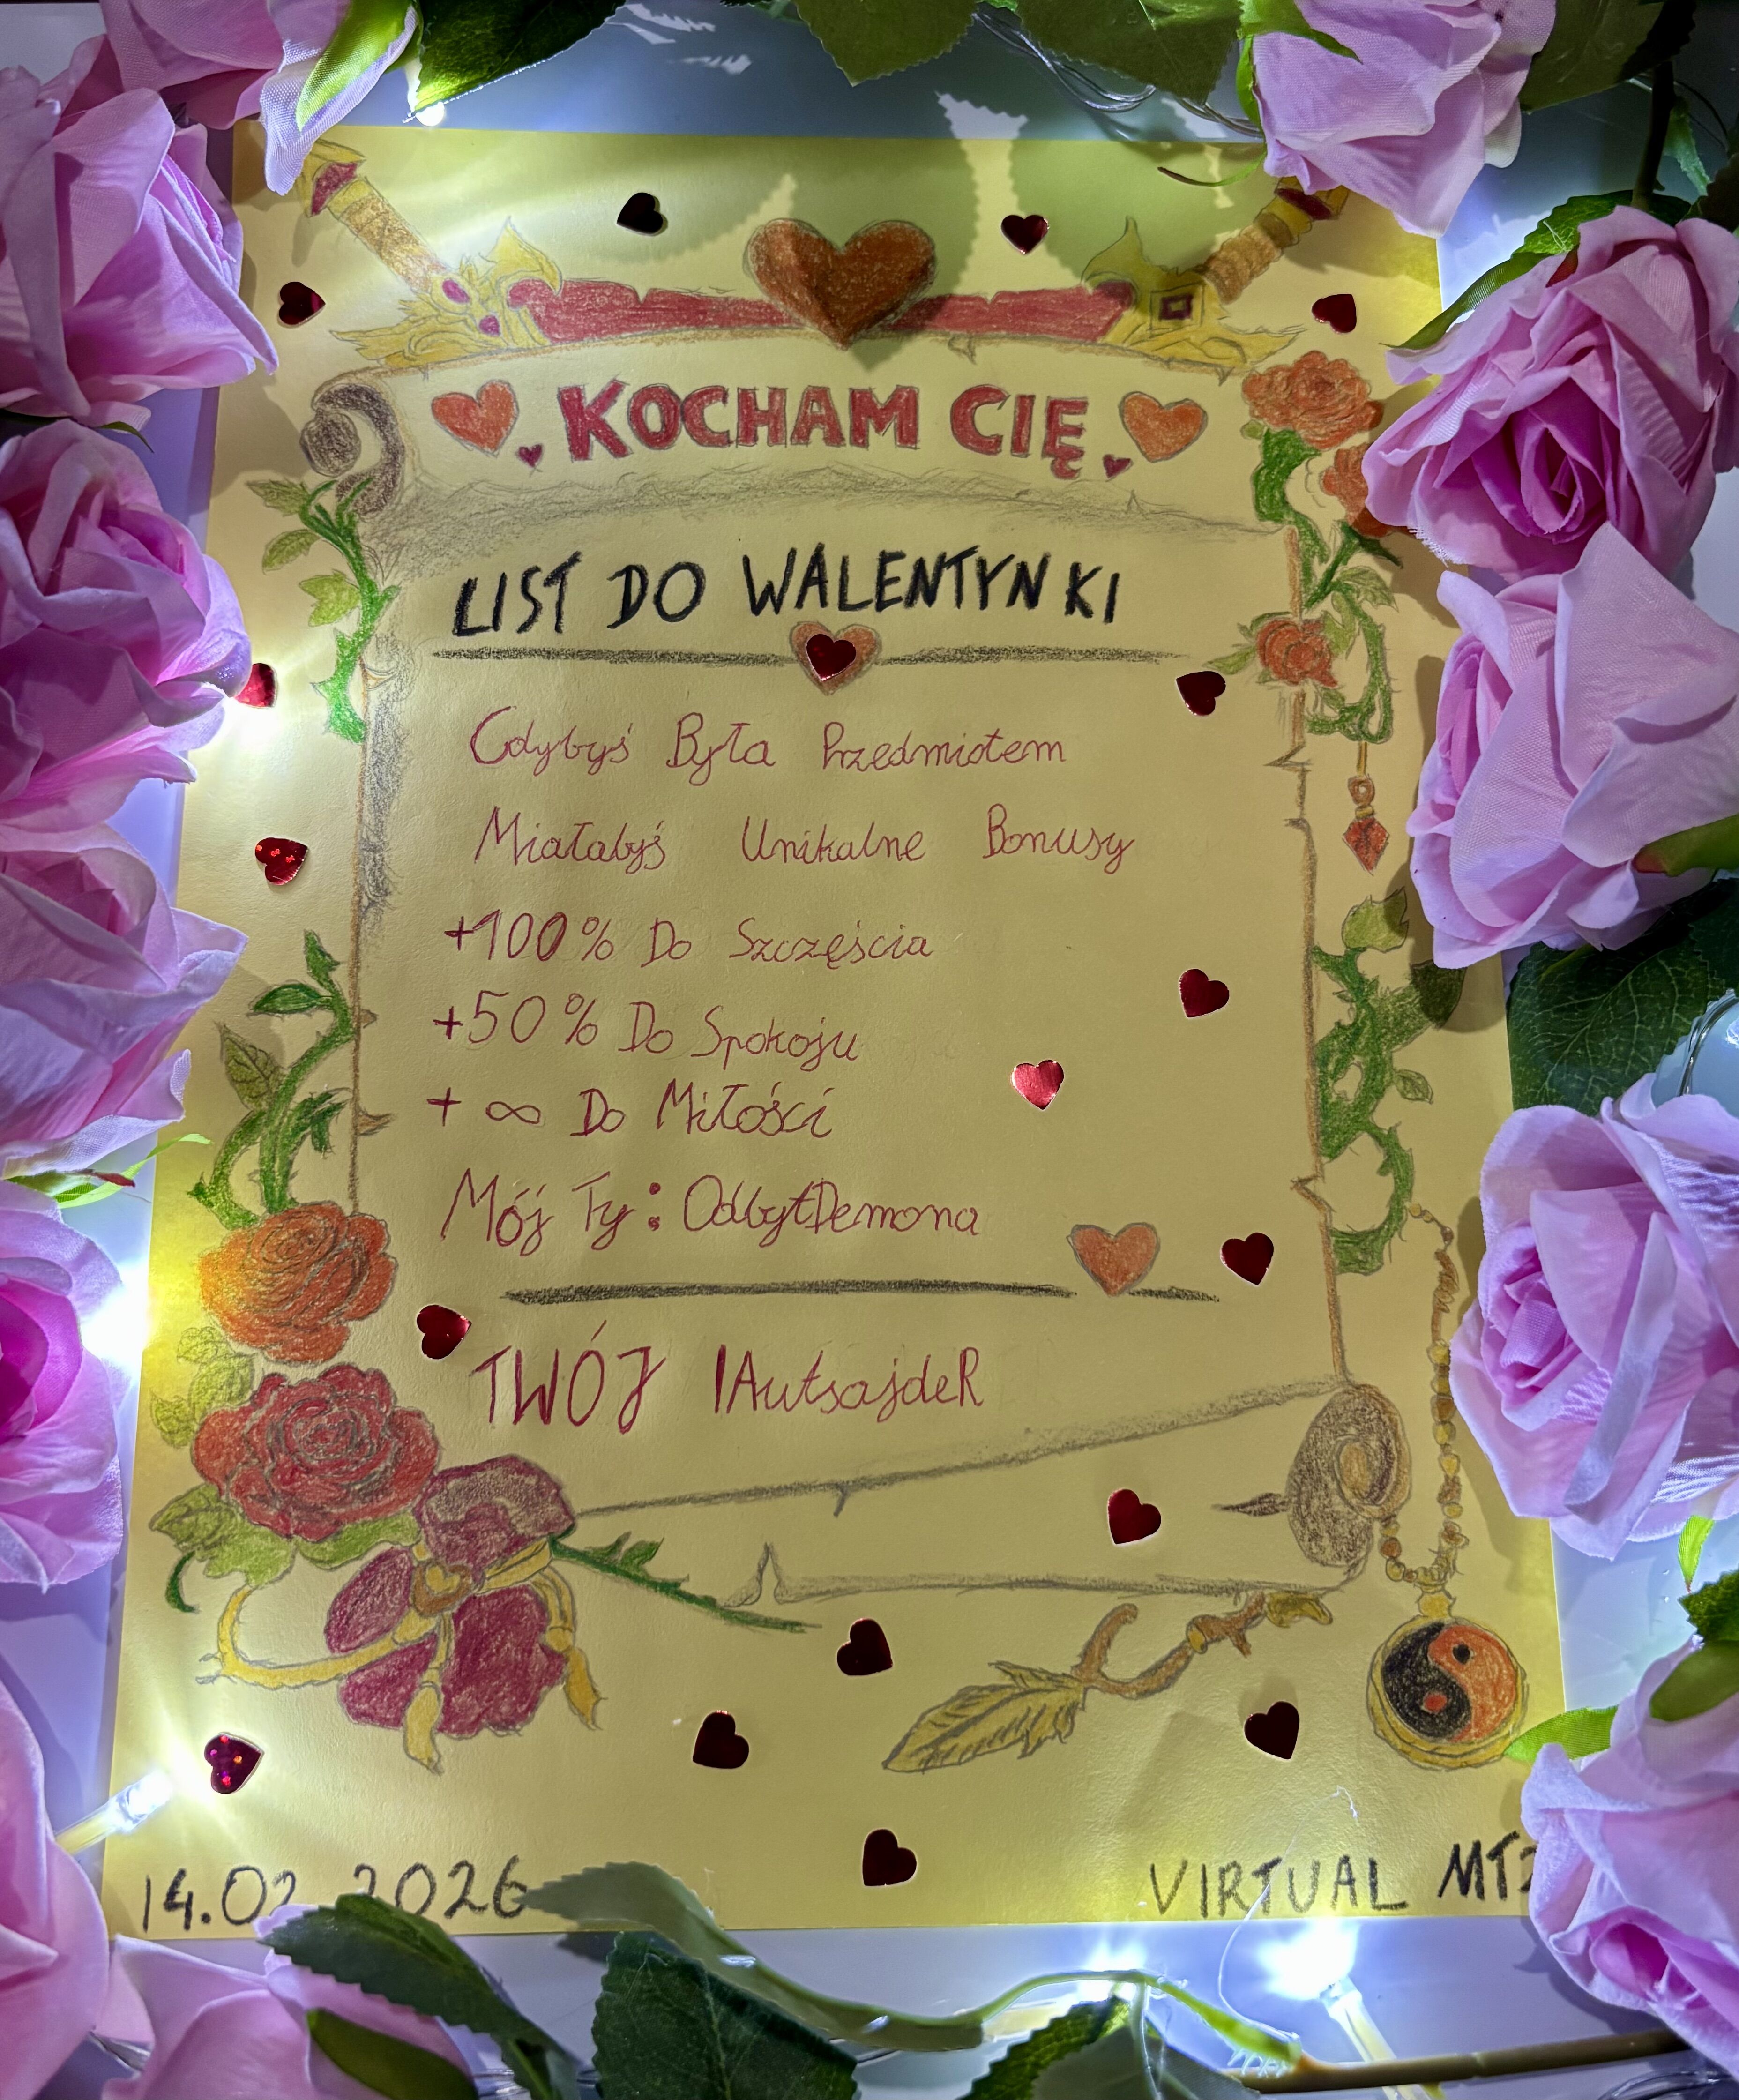 KOCHAM CIĘ
LIST DO WALENTYNKI
Gdybyś Była Przedmiotem
Miałabyś Unikalne Bonusy
+100% Do Szczęścia
+50% Do Spokoju
+ ∞ Do Miłości
Mój Ty: OdbytDemona
TWÓJ IAutsajdeR
14.02.2026
VIRTUAL MT2